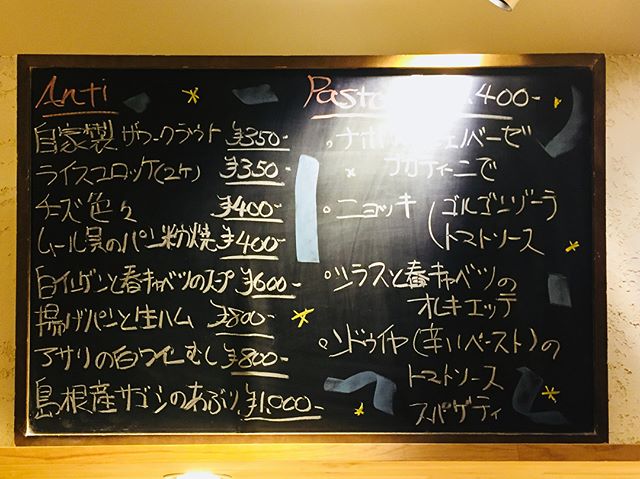 Anti
自家製 ザワークラウト ¥350-
ライスコロッケ(2ケ) ¥350-
チーズ色々 ¥400-
ムール貝のパン粉焼 ¥400-
白インゲンと春キャベツのスープ ¥600-
揚げパンと生ハム ¥800-
アサリの白ワインむし ¥800-
島根産サゴシのあぶり ¥1,000-
Pasta 400-
。ナポ バーで
ブカティーニで
。ニョッキ (ゴルゴンゾーラ
トマトソース
。シラスと春キャベツの
オレキエッテ
。ンドゥイヤ(辛いペースト)の
トマトソース
スパゲティ